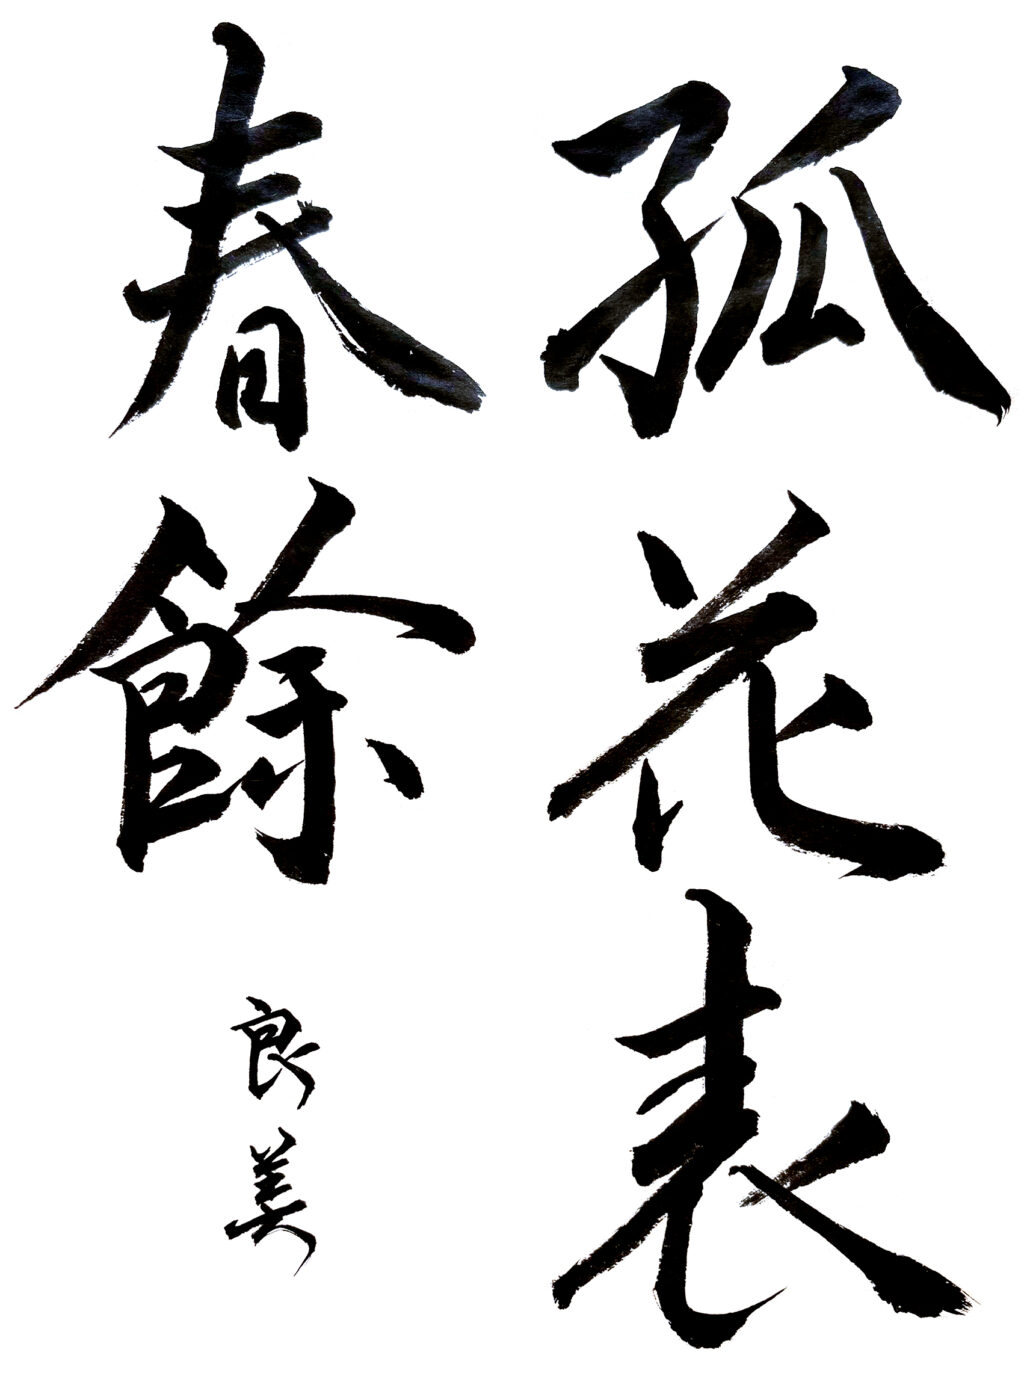 孤花表
春餘
良美